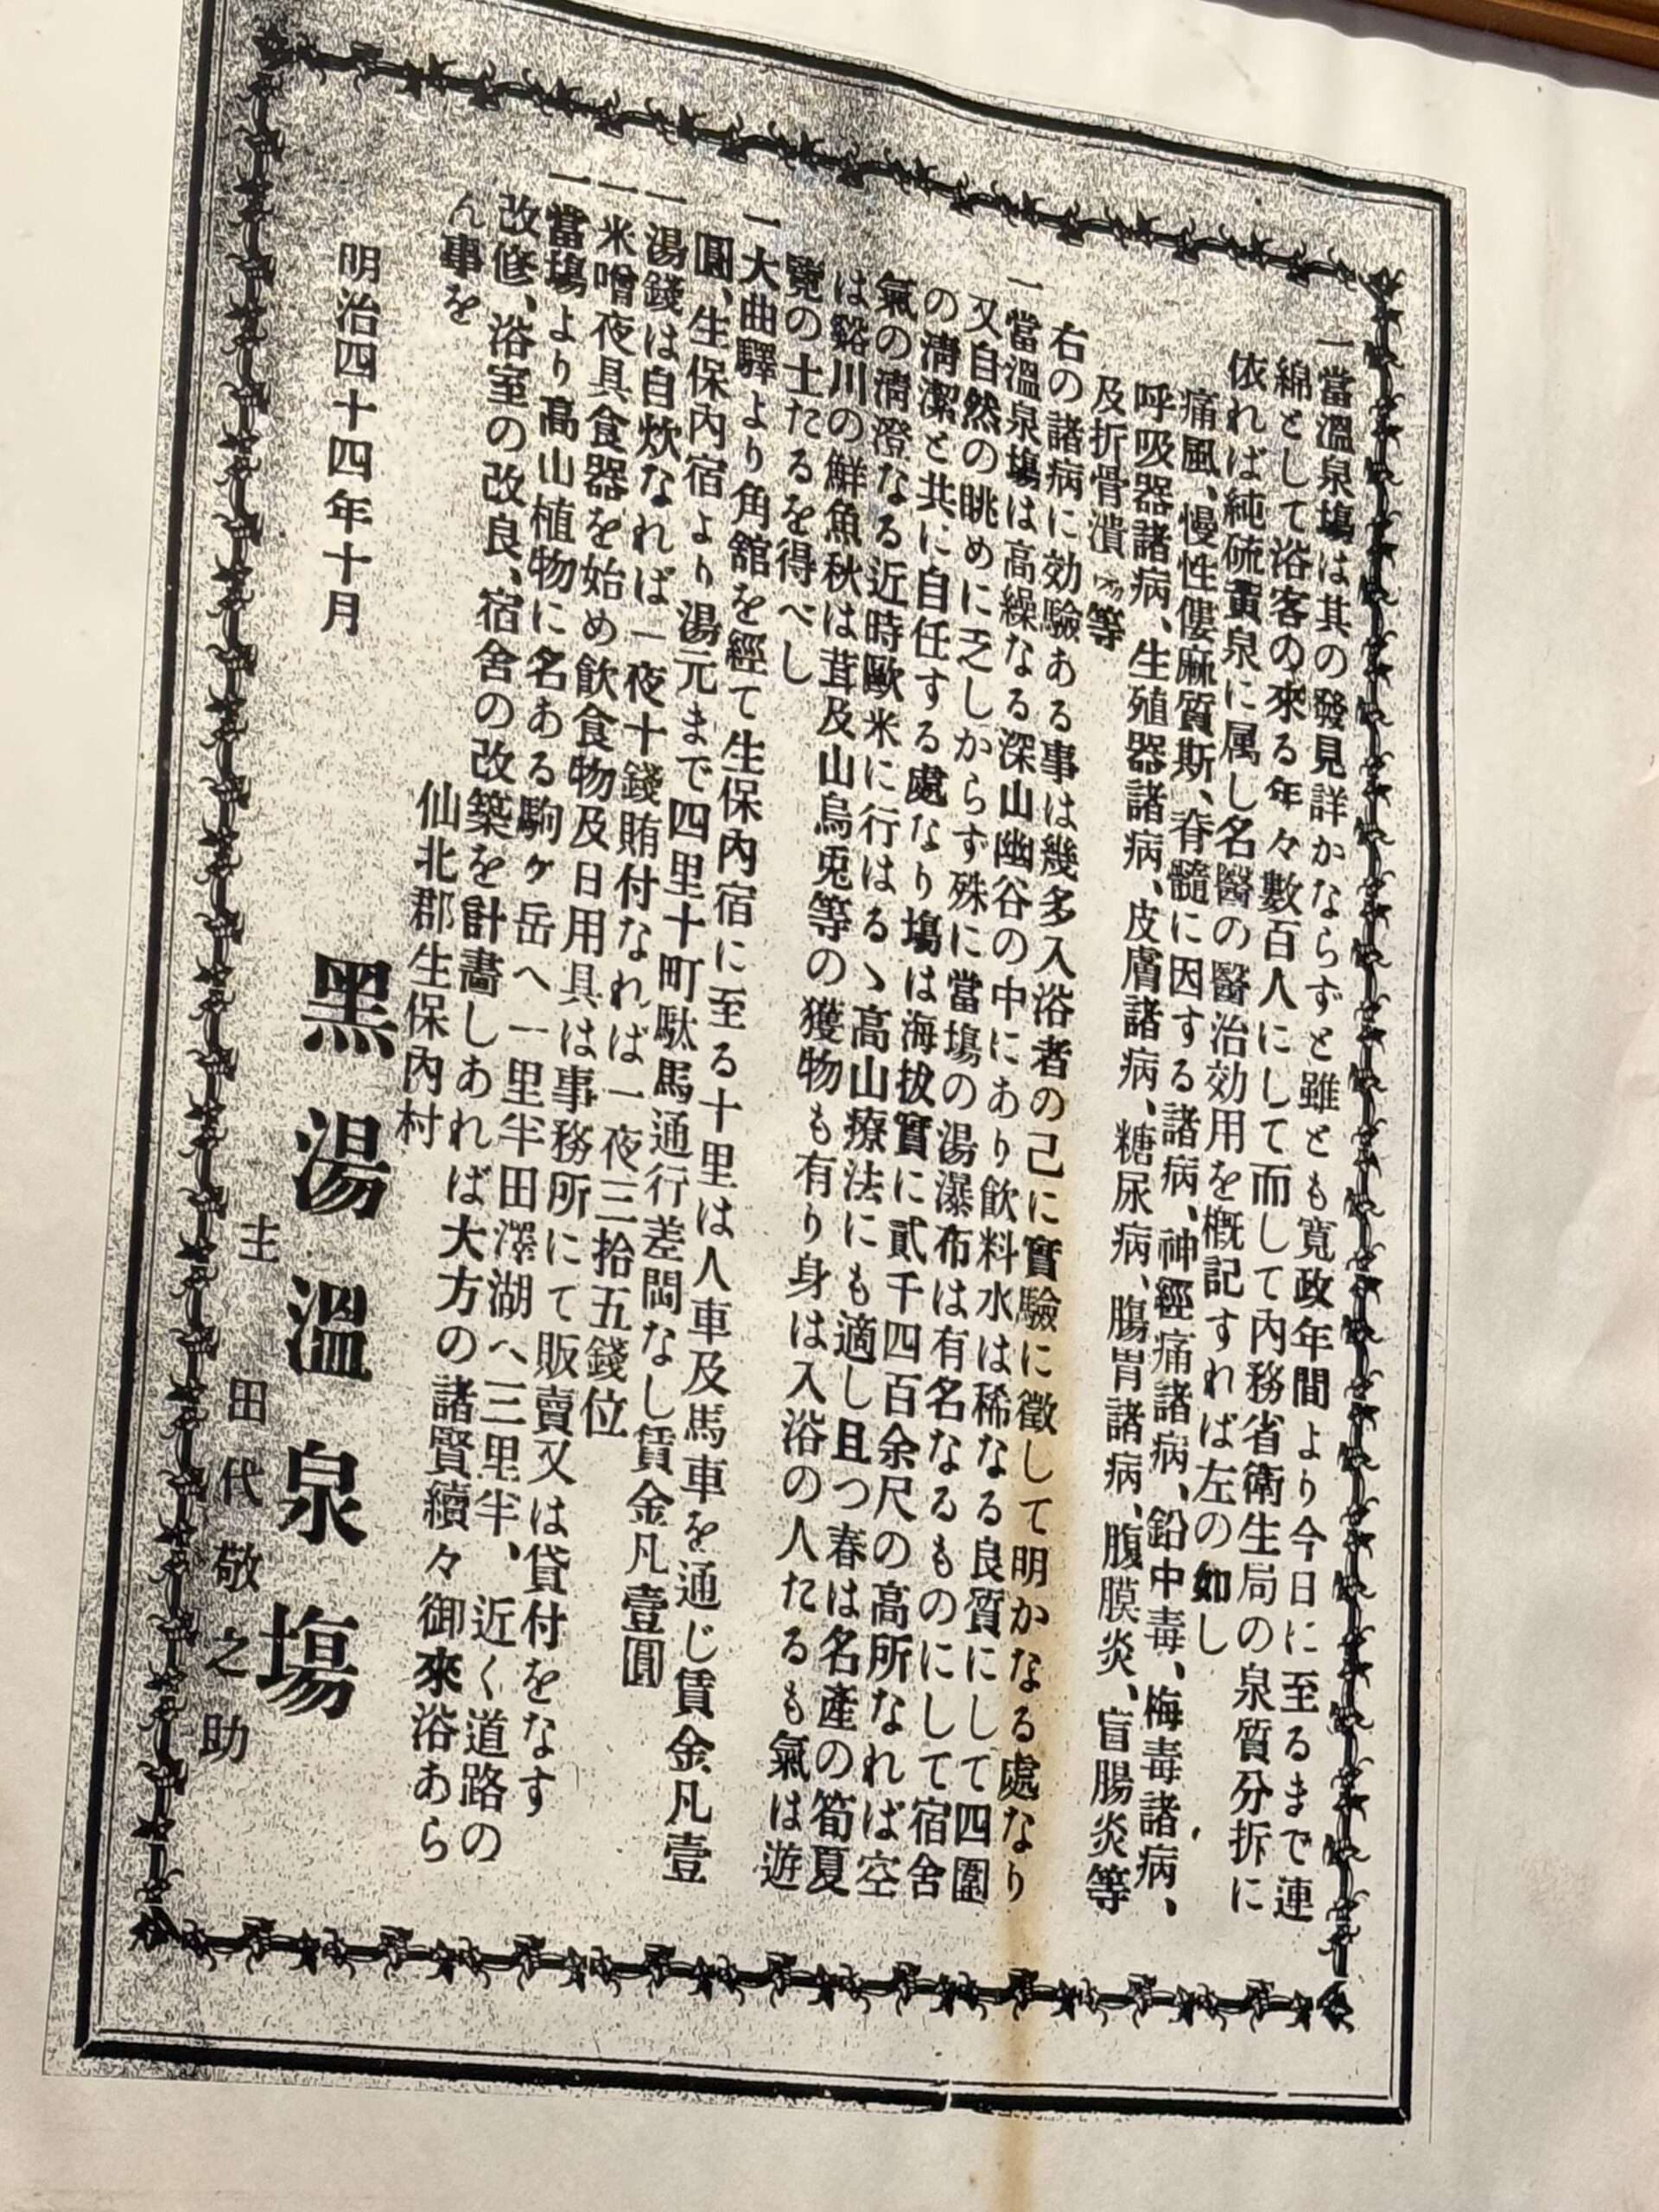 一當溫泉塲は其の發見詳かならずと雖とも寬政年間より今日に至るまで連
綿として浴客の來る年々數百人にして而して內務省衛生局の泉質分拆に
依れば純硫黃泉に属し名醫の醫治効用を槪記すれば左の如し
痛風、慢性僂麻質斯、脊髓に因する諸病、神經痛諸病、鉛中毒、梅毒諸病、
呼吸器諸病、生殖器諸病、皮膚諸病、糖尿病、腸胃諸病、腹膜炎、盲腸炎等
及折骨潰瘍等
右の諸病に効驗ある事は幾多入浴者の己に實驗に徵して明かなる處なり
一當溫泉塲は高繰なる深山幽谷の中にあり飮料水は稀なる良質にして四圍
又自然の眺めに乏しからず殊に當塲の湯瀑布は有名なるものにして宿舍
の淸潔と共に自任する處なり塲は海拔實に貳千四百余尺の高所なれば空
氣の淸澄なる近時歐米に行はるゝ高山療法にも適し且つ春は名產の筍夏
は谿川の鮮魚秋は茸及山鳥兎等の獲物も有り身は入浴の人たるも氣は遊
覽の士たるを得べし
一大曲驛より角舘を經て生保內宿に至る十里は人車及馬車を通じ賃金凡壹
圓、生保內宿より湯元まで四里十町駄馬通行差閊なし賃金凡壹圓
一湯錢は自炊なれば一夜十錢賄付なれば一夜三拾五錢位
一米噌夜具食器を始め飮食物及日用具は事務所にて販賣又は貸付をなす
一當塲より高山植物に名ある駒ヶ岳へ一里半田澤湖へ三里半、近く道路の
改修、浴室の改良、宿舍の改築を計畵しあれば大方の諸賢續々御來浴あら
ん事を
仙北郡生保內村
明治四十四年十月
黑湯溫泉塲
主 田代敬之助